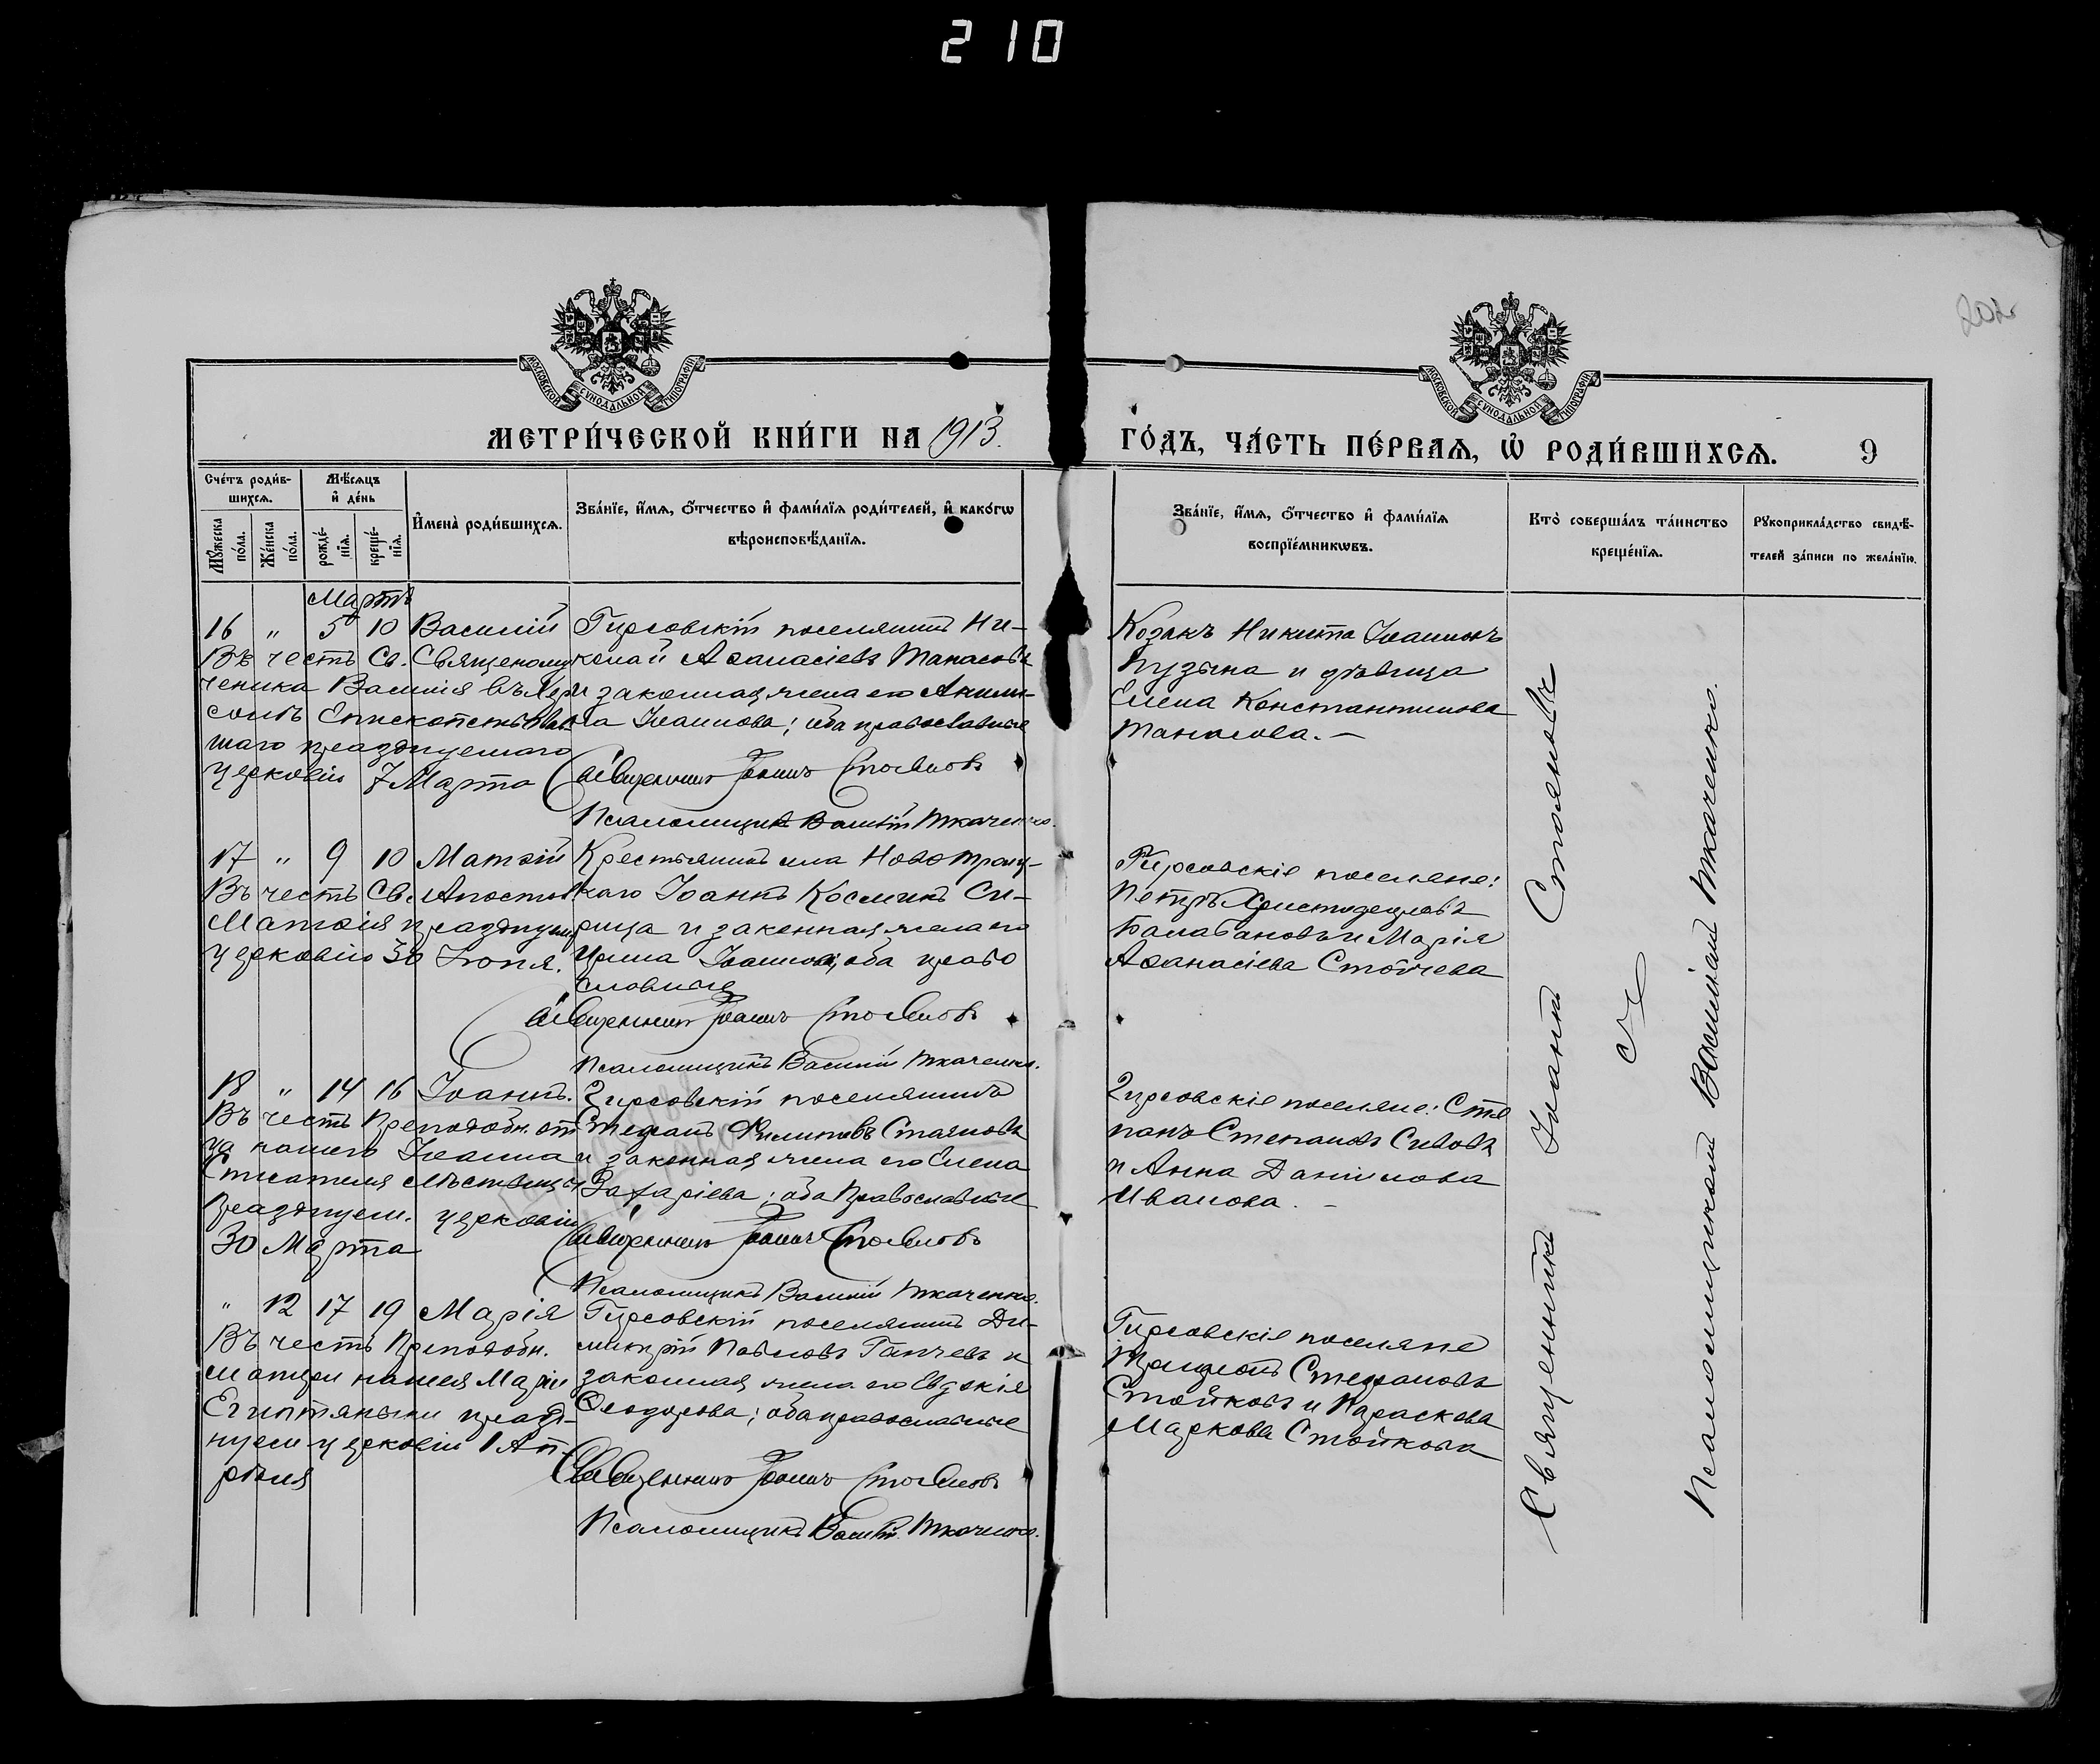 210
202
МОСКОВСКОЙ СѴНОДАЛЬНОЙ ТИПОГРАФІИ
МОСКОВСКОЙ СѴНОДАЛЬНОЙ ТИПОГРАФІИ
МЕТРИ́ЧЕСКОЙ КНИ́ГИ НА 1913.
ГО́ДЪ, ЧА́СТЬ ПЕ́РВАѦ, Ѡ҆ РОДИ́ВШИХСѦ. 9
Сче́тъ роди́в-
шихсѧ.
Мꙋ́жеска по́ла.
Же́нска по́ла.
Мѣ́сѧцъ
и҆ де́нь
рожде́-
нїѧ.
креще́-
нїѧ.
И҆мена̀ роди́вшихсѧ.
Зва́нїе, и҆́мѧ, ѻ҆́тчество и҆ фами́лїѧ роди́телей, и҆ како́гѡ
вѣроисповѣ́данїѧ.
Зва́нїе, и҆́мѧ, ѻ҆́тчество и҆ фами́лїѧ
воспрїе́мникѡвъ.
Кто̀ соверша́лъ та́инство
креще́нїѧ.
Рꙋкоприкла́дство свидѣ́-
телей за́писи по жела́нїю.
Мартъ
16 " 5 10 Василій
Въ честь Св. Священому
ченика Василія въ Хер
сонѣ Епископствовав
шаго празднуемаго
церковію 7 Марта
Гирсовскій поселянинъ Ни-
колай Аѳанасіевъ Танасовъ
и законная жена его Аники-
на Іоаннова; оба православные
Священникъ Іоаннъ Стояновъ
Псаломщикъ Василій Ткаченко.
Козакъ Никита Іоанновъ
Пузына и дѣвица
Елена Константинова
Танасова. —
17 " 9 10 Матѳій
Въ честь Св. Апостол
Матѳія празднуем
церковію 30 Іюня.
Крестьянинъ села Ново Троиц-
каго Іоаннъ Косминъ Си-
рица и законная жена его
Ирина Іоаннова; оба право
славные
Священникъ Іоаннъ Стояновъ
Псаломщикъ Василій Ткаченко.
Гирсовскіе поселяне:
Петръ Христодуловъ
Балабановъ и Марія
Аѳанасіева Стойчева
18 " 14 16 Іоаннъ.
Въ честь Преподобн. от
ца нашего Іоанна
Списателя Лѣствицы
празднуем. церковію
30 Марта
Гирсовскій поселянинъ
Стефанъ Филиповъ Стаяновъ
и законная жена его Елена
Захаріева; оба Православные
Священникъ Іоаннъ Стояновъ
Псаломщикъ Василій Ткаченко.
Гирсовскіе поселяне: Сте
панъ Степановъ Сивовъ
и Анна Даніилова
Иванова. —
" 12 17 19 Марія
Въ честь Преподобн.
матери нашея Маріи
Египтяныни празд-
нуем церковію 1 Ап-
рѣля
Гирсовскій поселянинъ Ди-
митрій Павловъ Ганчевъ и
законная жена его Евдокія
Ѳеодорова; оба православные
Священникъ Іоаннъ Стояновъ
Псаломщикъ Василій Ткаченко.
Гирсовскіе поселяне
Стефановъ
Стойковъ и Параскева
Маркова Стойкова
Священникъ Іоаннъ Стояновъ
съ
Псаломщикомъ Василіемъ Ткаченко.